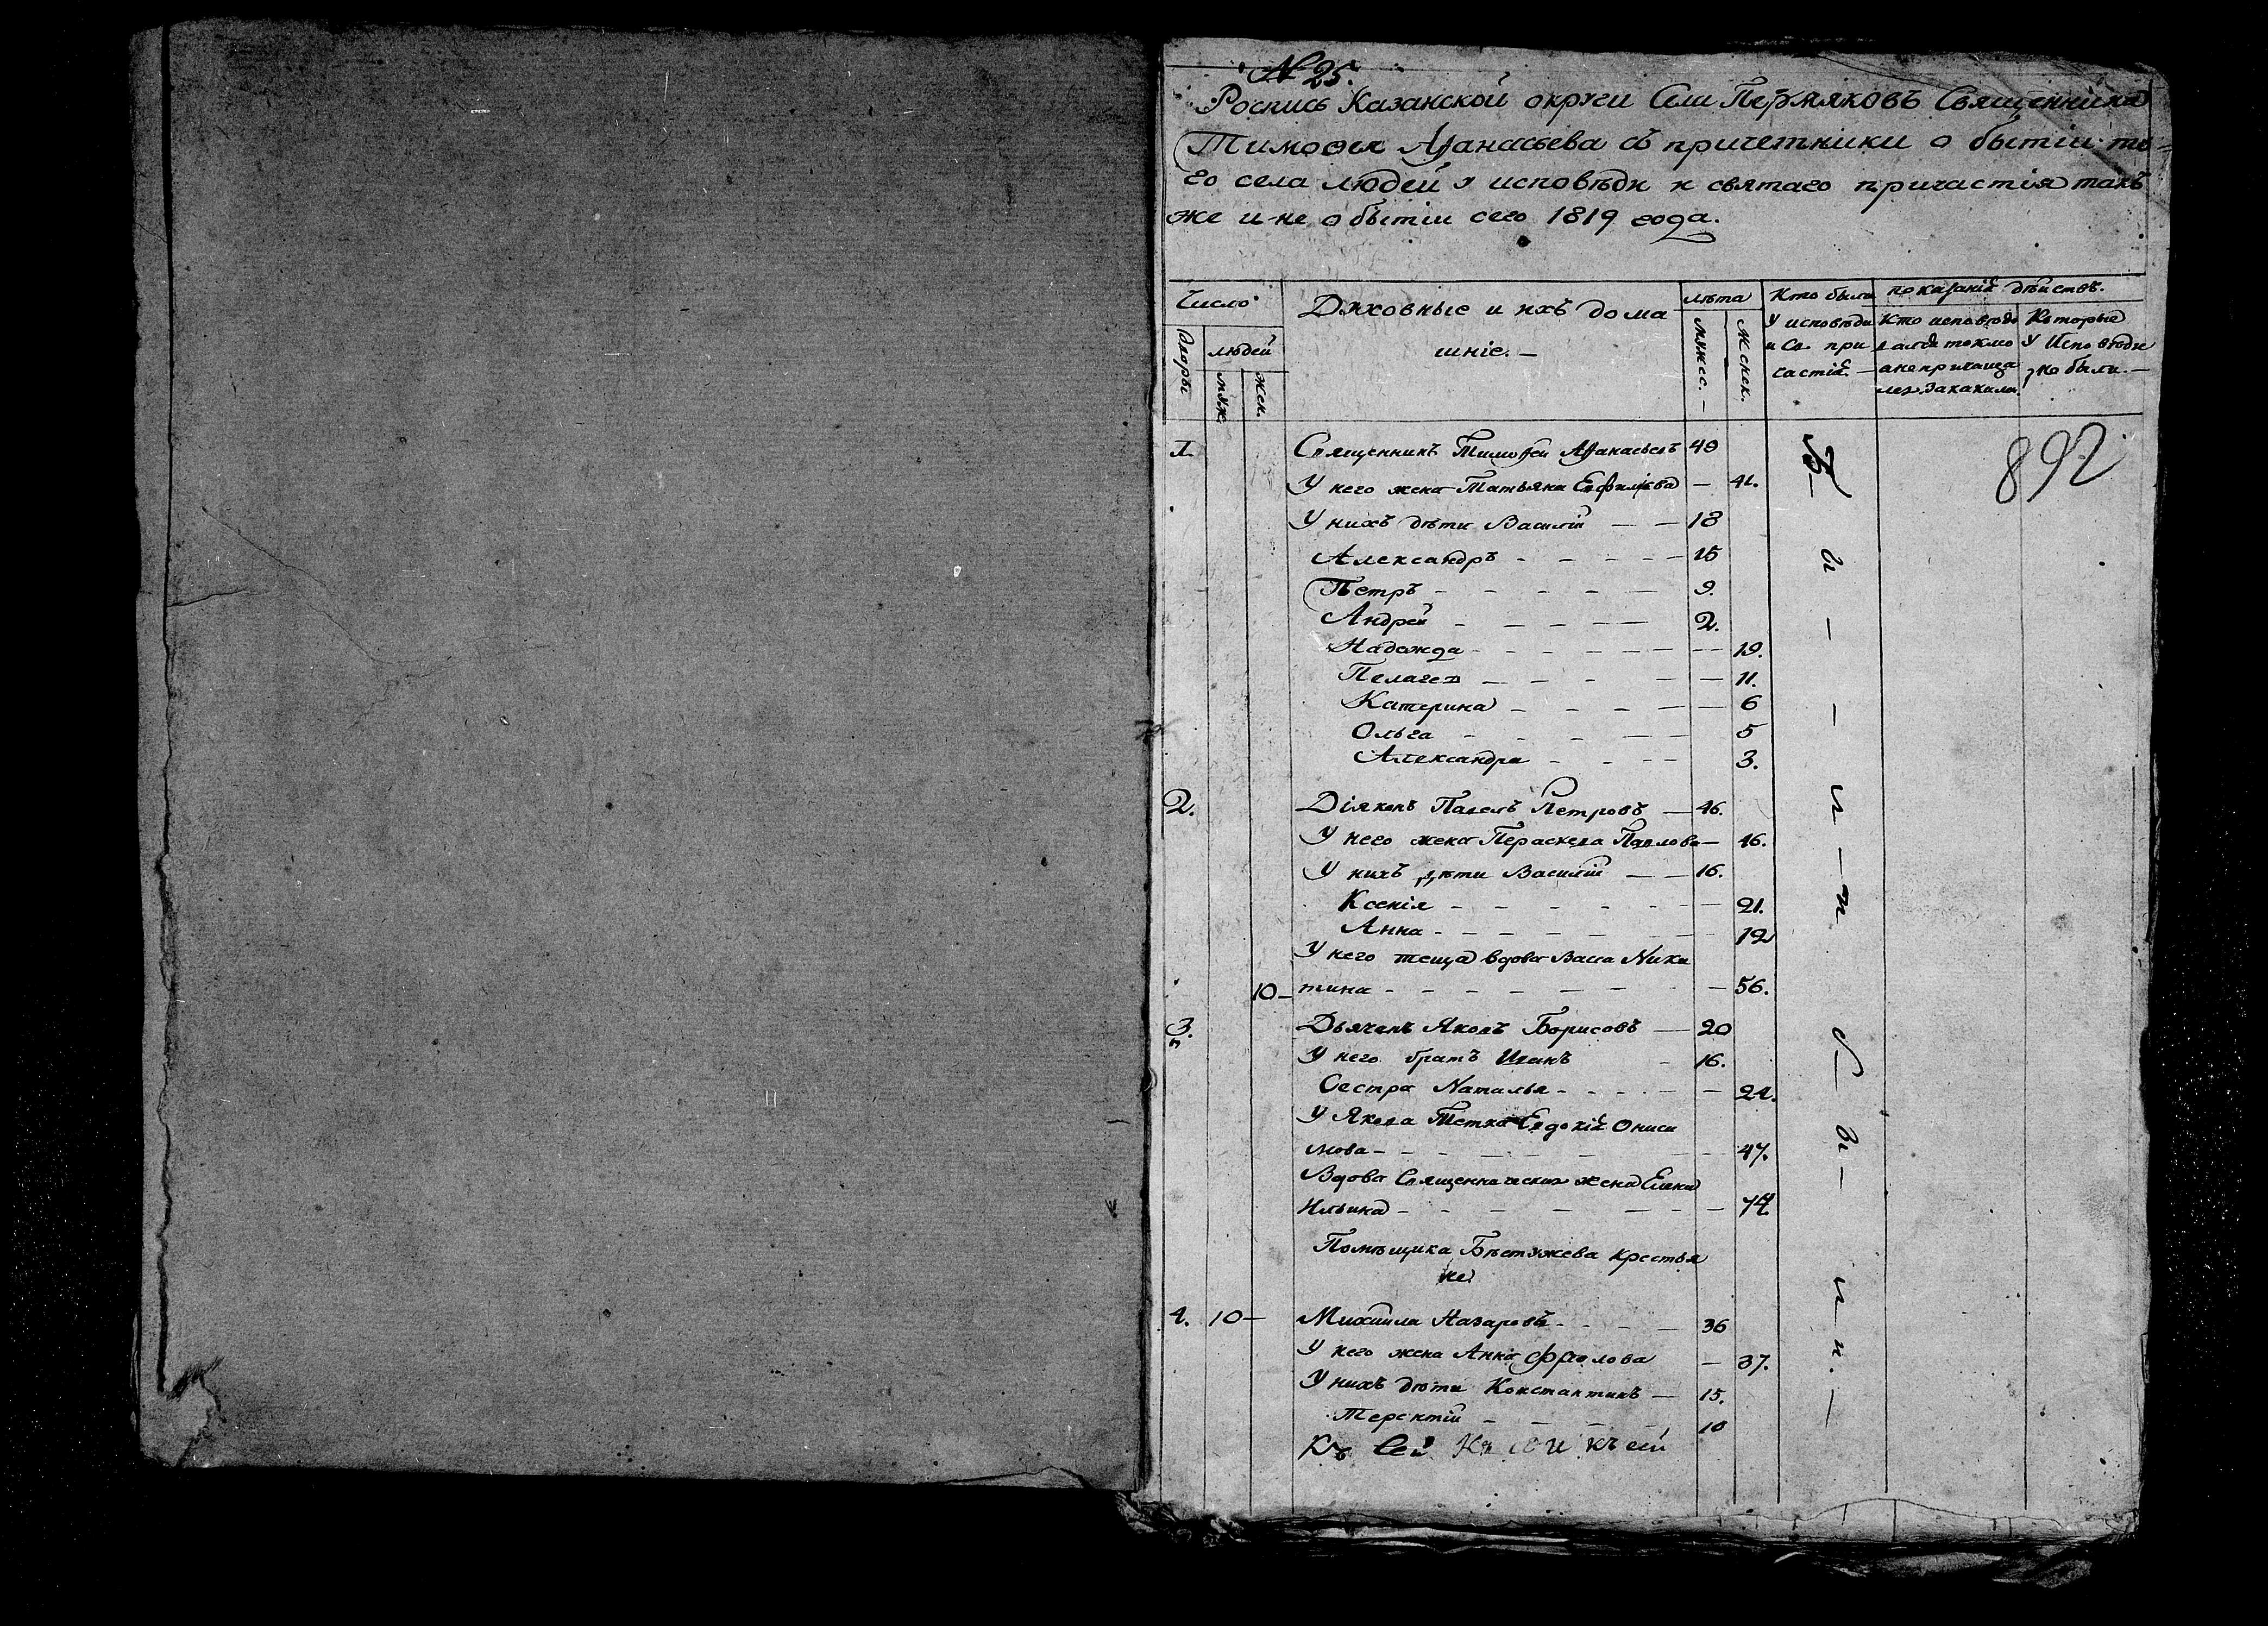 № 25.
Роспись Казанской округи Села Пермяковъ Священника
Тимоѳея Афанасьева съ причетники о бытіи то=
го села людей у исповѣди и святаго причастія такъ
же и не о бытіи сего 1819 года.
Число
Духовные и ихъ дома
шніе. —
лѣта
Кто были
показаній дѣйствъ.
Дворы
людей
муж.
жен.
мужес. —
женск.
у исповѣди
и Св. при
частія. —
Кто исповѣдо
вался токмо
а не причаща
лся.
Которые
у Исповѣди
не были. —
892
1 Священникъ Тимофеи Афанасьевъ 49
У него жена Татьяна — 41.
У нихъ дѣти Василій — — 18
Александръ - - - - — 15
Петръ - - - - — 9.
Андрей - - - — — 2.
Надежда - - - - — — 19.
Пелагея — - - - — — 11.
Катерина - - - - — — 6
Ольга - - - - — — 5
Александра - - - - 3.
2. Діяконъ Павелъ Петровъ — 46.
У него жена Параскева Павлова — 46.
У нихъ дѣти Василій — — 16.
Ксенія - - - - - - — 21.
Анна - - - - - - — 12
У него теща вдова Васа Ники
10 — тина - - - - - - - — 56.
3. Дьячекъ Яковъ Борисовъ — 20
У него братъ Иванъ - 16.
Сестра Наталья - - - - — — 24.
У Якова Тетка Евдокія Ониси
мова - - - - - - — 47.
Вдова Священническая жена Елена
Ильина - - - - — - - — 74.
Помѣщика Бѣстужева крестья
не
4. 10 — Михаила Назаровъ - - - — 36
У него жена Анна Фролова — 37.
У нихъ дѣти Константинъ — 15.
Терентій - - - - - 10
Къ сей
Б — ы — — л — и
б — ы — л и. —